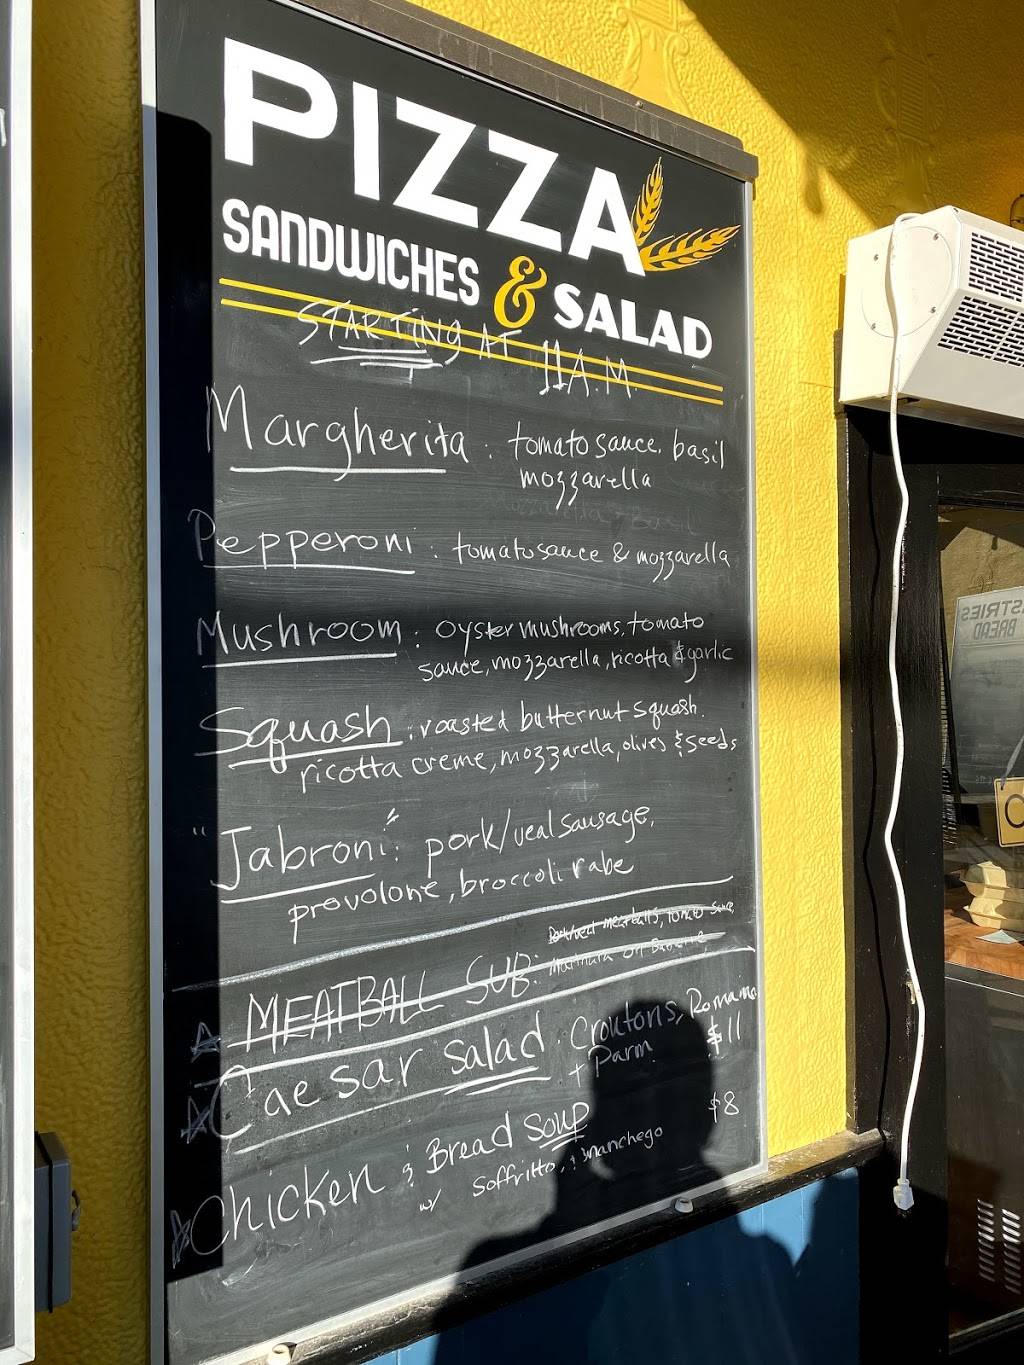 PIZZA
SANDWICHES & SALAD
STARTING AT 11 A.M.
Margherita : tomato sauce, basil
mozzarella
Pepperoni : tomato sauce & mozzarella
Mushroom : oyster mushrooms, tomato
sauce, mozzarella, ricotta & garlic
Squash : roasted butternut squash.
ricotta creme, mozzarella, olives & seeds
"Jabroni": pork/veal sausage,
provolone, broccoli rabe
MEATBALL SUB: Pork/veal meatballs, tomato sauce,
marinara on
Caesar Salad : Croutons, Romaine
+ Parm $11
Chicken & Bread Soup $8
w/ soffritto, & manchego
STRIES
BREAD